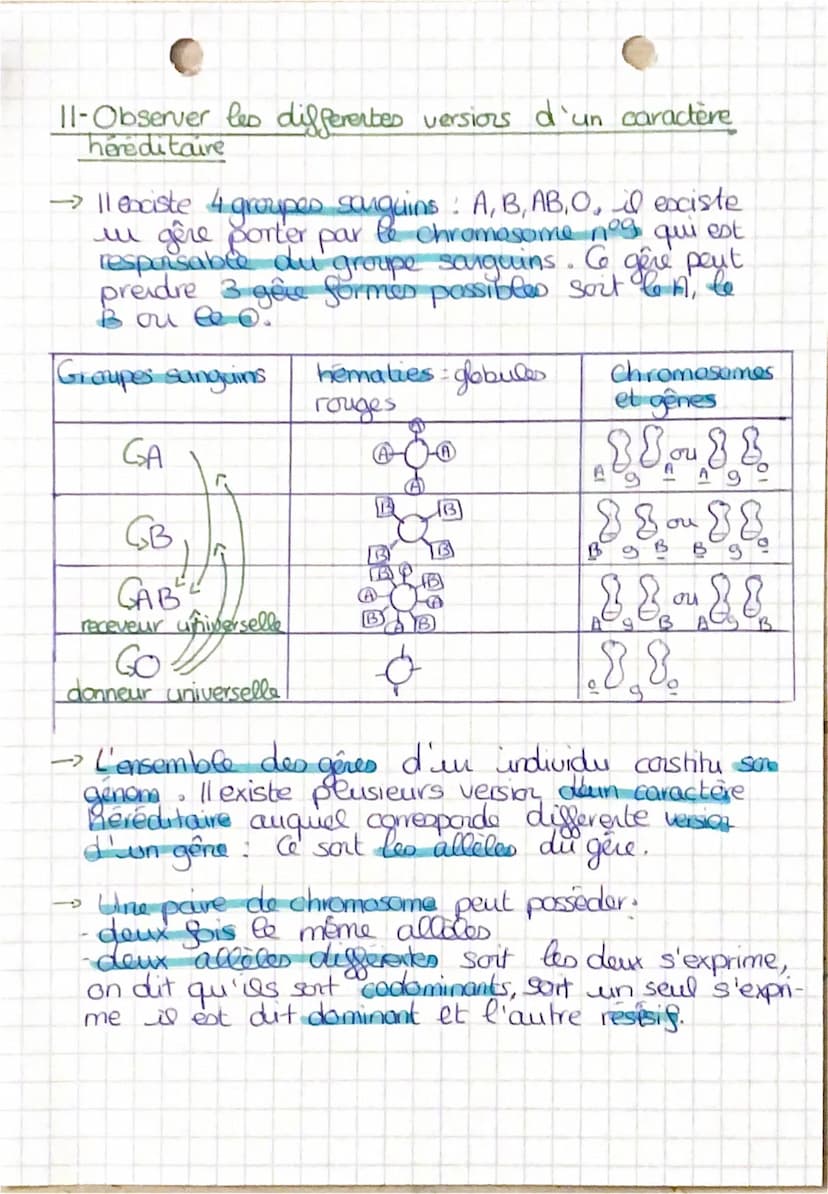 II-Observer les differentes versions d'un caractère
héréditaire
→ Il existe 4 groupes sanguins : A, B, AB, O, il existe
un gêne porter par le chromosome n°9 qui est
responsable du groupe sanguins. Ce gêne peut
prendre 3 gêne formes possibles soit le A, le
B ou le O.
Groupes sanguins
hématies = globules
rouges
chromosomes
et gênes
GA
A A A A
ou
A 9 A A 9 O
GB
B B B B
ou
B 9 B B 9 O
GAB
receveur universelle
B B A A B A B
ou
A 9 B A 9 B
GO
donneur universelle
O 9 O
→ L'ensemble des gênes d'un individu constitu son
génom. Il existe plusieurs version d'un caractère
héréditaire auquel corresponde differente version
d'un gêne : Ce sont les allèles du gêne.
→ Une paire de chromosome peut posséder :
- deux fois le même allèles
- deux allèles différentes soit les deux s'exprime,
on dit qu'ils sont codominants, soit un seul s'expri-
me il est dit dominant et l'autre résésif.